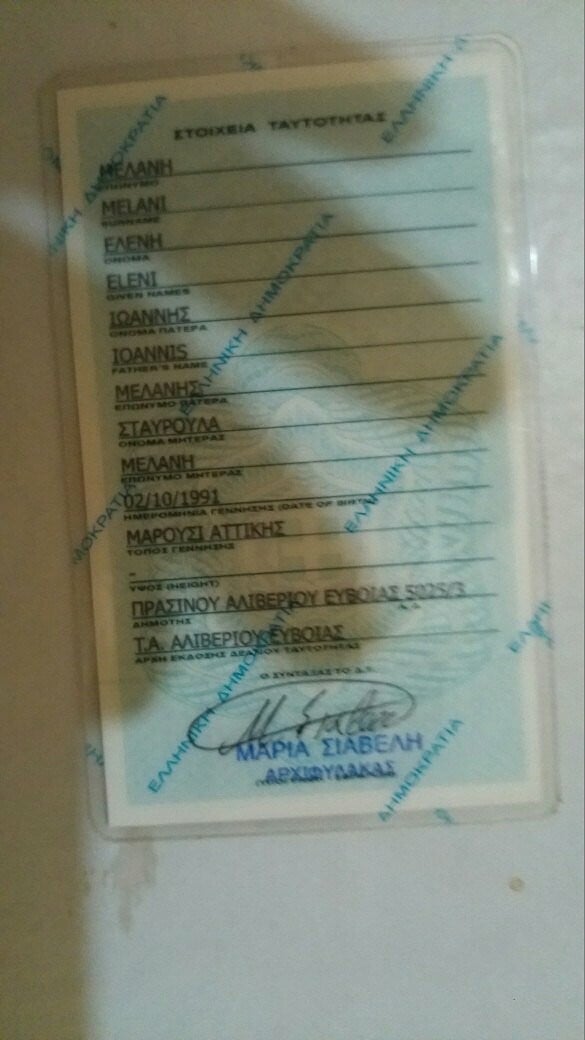 ΣΤΟΙΧΕΙΑ ΤΑΥΤΟΤΗΤΑΣ
ΜΕΛΑΝΗ
ΕΠΩΝΥΜΟ
MELANI
SURNAME
ΕΛΕΝΗ
ΟΝΟΜΑ
ELENI
GIVEN NAMES
ΙΩΑΝΝΗΣ
ΟΝΟΜΑ ΠΑΤΕΡΑ
IOANNIS
FATHER'S NAME
ΜΕΛΑΝΗΣ
ΕΠΩΝΥΜΟ ΠΑΤΕΡΑ
ΣΤΑΥΡΟΥΛΑ
ΟΝΟΜΑ ΜΗΤΕΡΑΣ
ΜΕΛΑΝΗ
ΕΠΩΝΥΜΟ ΜΗΤΕΡΑΣ
02/10/1991
ΗΜΕΡΟΜΗΝΙΑ ΓΕΝΝΗΣΗΣ (DATE OF BIRTH)
ΜΑΡΟΥΣΙ ΑΤΤΙΚΗΣ
ΤΟΠΟΣ ΓΕΝΝΗΣΗΣ
-
ΥΨΟΣ (HEIGHT)
ΠΡΑΣΙΝΟΥ ΑΛΙΒΕΡΙΟΥ ΕΥΒΟΙΑΣ 5025/3
ΔΗΜΟΤΗΣ
Τ.Α. ΑΛΙΒΕΡΙΟΥ ΕΥΒΟΙΑΣ
ΑΡΧΗ ΕΚΔΟΣΗΣ ΔΕΛΤΙΟΥ ΤΑΥΤΟΤΗΤΑΣ
Ο ΣΥΝΤΑΞΑΣ ΤΟ Δ.Τ.
ΜΑΡΙΑ ΣΙΑΒΕΛΗ
ΑΡΧΙΦΥΛΑΚΑΣ
ΕΛΛΗΝΙΚΗ ΔΗΜΟΚΡΑΤΙΑ
ΕΛΛΗΝΙΚΗ ΔΗΜΟΚΡΑΤΙΑ
ΕΛΛΗΝΙΚΗ ΔΗΜΟΚΡΑΤΙΑ
ΕΛΛΗΝΙΚΗ
ΔΗΜΟΚΡΑΤΙΑ